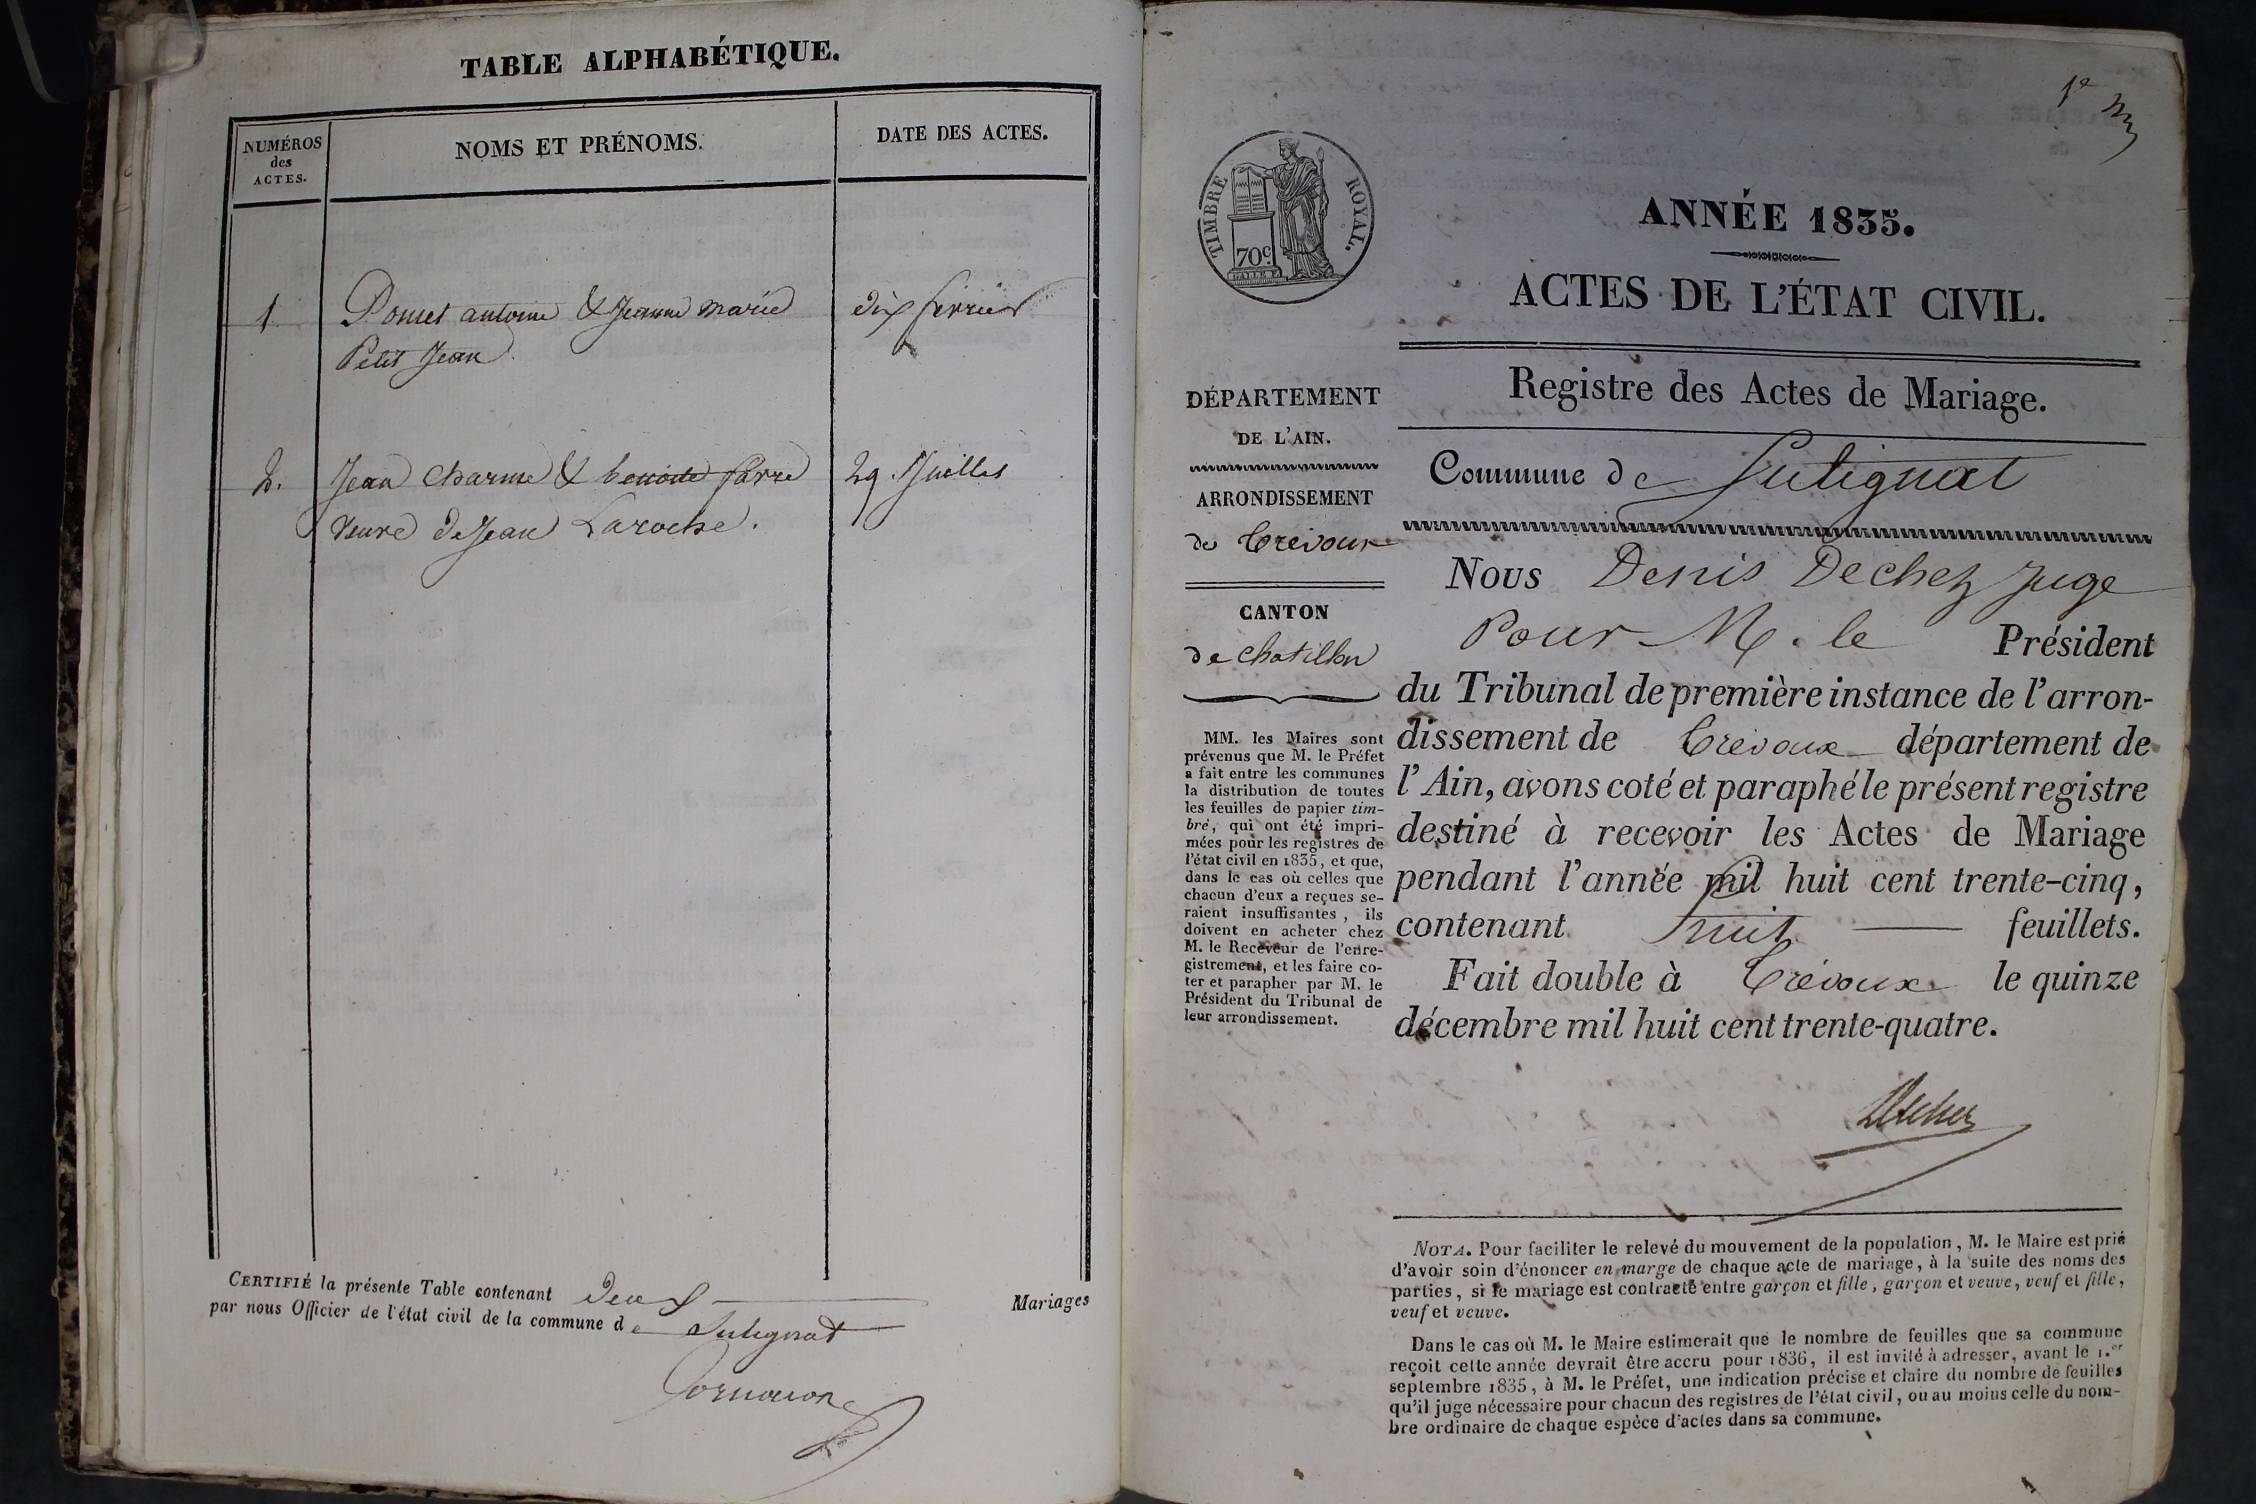 TABLE ALPHABÉTIQUE.
NUMÉROS
des
ACTES.
NOMS ET PRÉNOMS.
DATE DES ACTES.
1 Poncet antoine & Jeanne marie dix fevrier
Petit Jean
2. Jean Charme & benoite favre 29. Juillet
veuve de Jean Laroche.
CERTIFIÉ la présente Table contenant deux Mariages
par nous Officier de l'état civil de la commune de Sulignat
1e
TIMBRE ROYAL.
70c.
ANNÉE 1835.
ACTES DE L'ÉTAT CIVIL.
Registre des Actes de Mariage.
DÉPARTEMENT
DE L'AIN.
ARRONDISSEMENT
de Trevoux
CANTON
de chatillon
MM. les Maires sont
prévenus que M. le Préfet
a fait entre les communes
la distribution de toutes
les feuilles de papier tim-
bré, qui ont été impri-
mées pour les registres de
l'état civil en 1835, et que,
dans le cas où celles que
chacun d'eux a reçues se-
raient insuffisantes, ils
doivent en acheter chez
M. le Receveur de l'enre-
gistrement, et les faire co-
ter et parapher par M. le
Président du Tribunal de
leur arrondissement.
Commune de Sulignat
Nous Denis Dechez Juge
Pour M. le Président
du Tribunal de première instance de l'arron-
dissement de Trévoux département de
l'Ain, avons coté et paraphé le présent registre
destiné à recevoir les Actes de Mariage
pendant l'année mil huit cent trente-cinq,
contenant huit feuillets.
Fait double à Trévoux le quinze
décembre mil huit cent trente-quatre.
Dechez
NOTA. Pour faciliter le relevé du mouvement de la population, M. le Maire est prié
d'avoir soin d'énoncer en marge de chaque acte de mariage, à la suite des noms des
parties, si le mariage est contracté entre garçon et fille, garçon et veuve, veuf et fille,
veuf et veuve.
Dans le cas où M. le Maire estimerait que le nombre de feuilles que sa commune
reçoit cette année devrait être accru pour 1836, il est invité à adresser, avant le 1.er
septembre 1835, à M. le Préfet, une indication précise et claire du nombre de feuilles
qu'il juge nécessaire pour chacun des registres de l'état civil, ou au moins celle du nom-
bre ordinaire de chaque espèce d'actes dans sa commune.